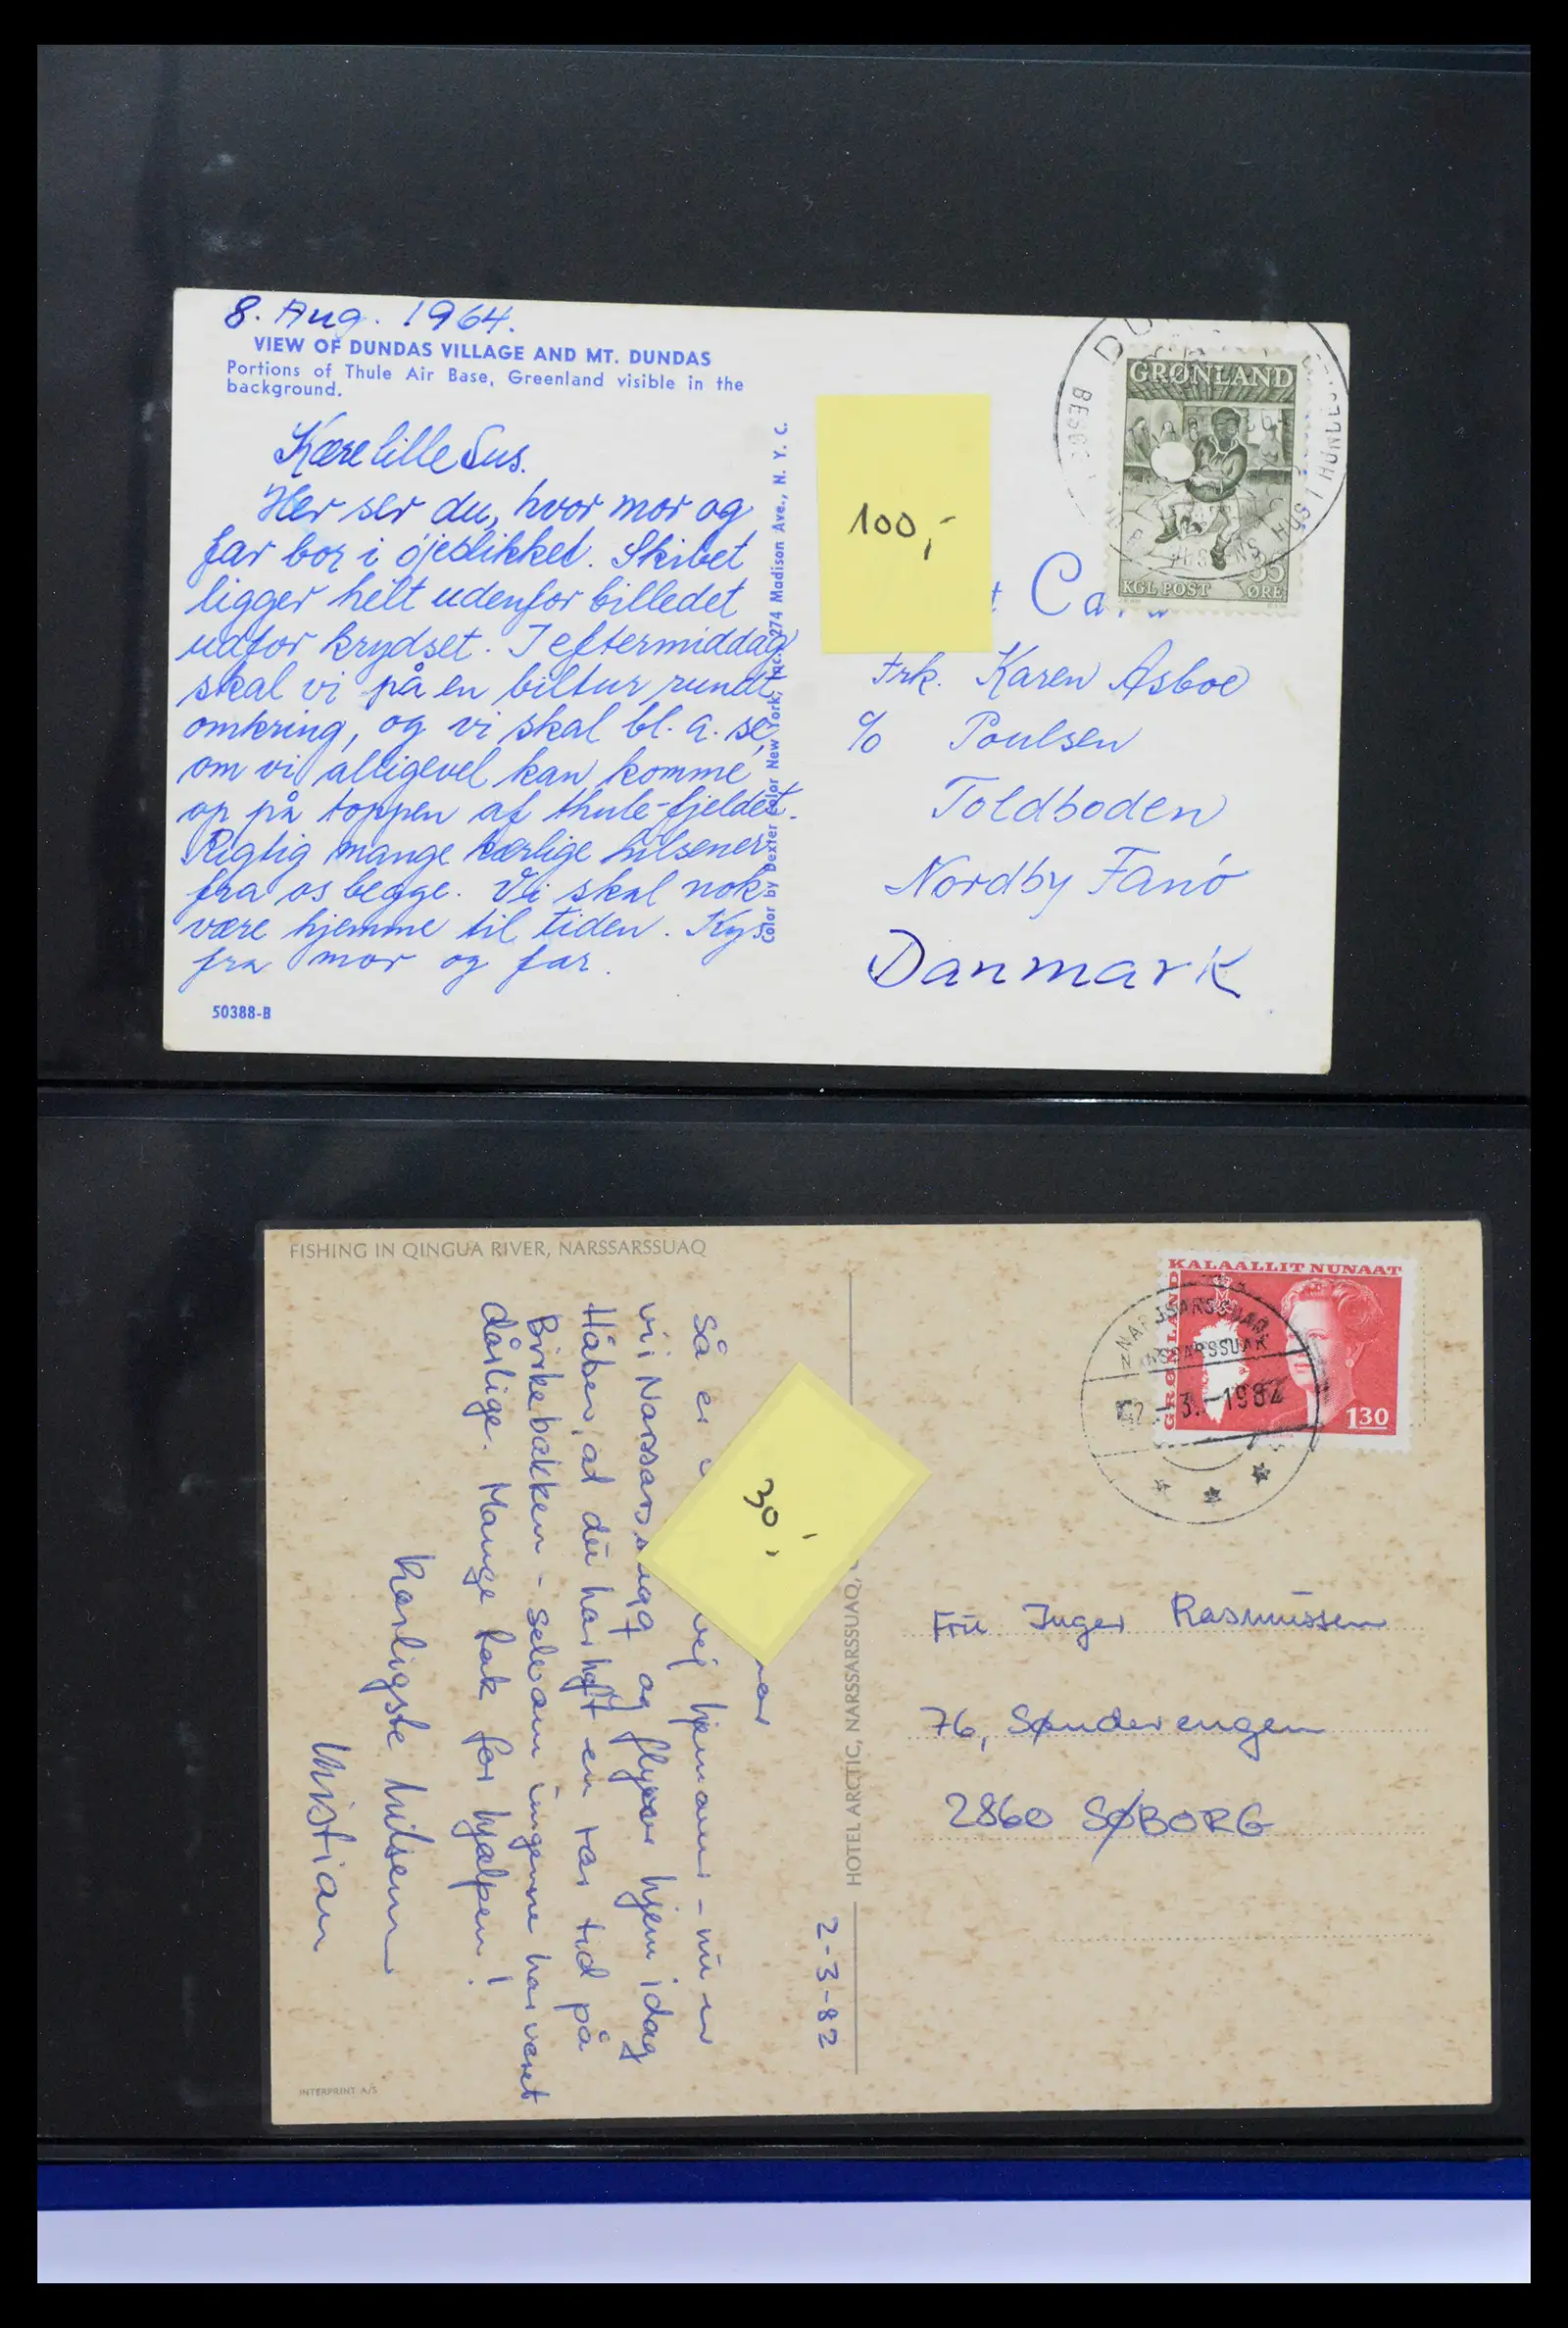 8. Aug. 1964.
VIEW OF DUNDAS VILLAGE AND MT. DUNDAS
Portions of Thule Air Base, Greenland visible in the
background.
Kære lille Sus.
Her ser du, hvor mor og
far bor i øjeblikket. Skibet
ligger helt udenfor billedet
udfor krydset. I eftermiddag
skal vi på en biltur rundt
omkring, og vi skal bl. a. se,
om vi alligevel kan komme
op på toppen af thule-fjeldet.
Rigtig mange kærlige hilsener
fra os begge. Vi skal nok
være hjemme til tiden. Kys
fra mor og far.
50388-B
Color by Dexter Color New York, Inc. 274 Madison Ave., N. Y. C.
100,-
GRØNLAND
KGL POST
35
ØRE
Frk. Karen Asboe
c/o Poulsen
Toldboden
Nordby Fanø
Danmark
FISHING IN QINGUA RIVER, NARSSARSSUAQ
2-3-82
Så er vej hjemover - nu er
vi i Narssarssuaq og flyver hjem idag
Håber, at du har haft en rar tid på
Birkebakken - selvom ungerne har været
dårlige. Mange tak for hjælpen!
Kærligste hilsener
Christian
30,-
HOTEL ARCTIC, NARSSARSSUAQ,
INTERPRINT A/S
KALAALLIT NUNAAT
GRØNLAND
130
NARSSARSSUAQ
NARSSARSSUAK
2.-3.-1982
Fru Inger Rasmussen
76, Sønderengen
2860 SØBORG